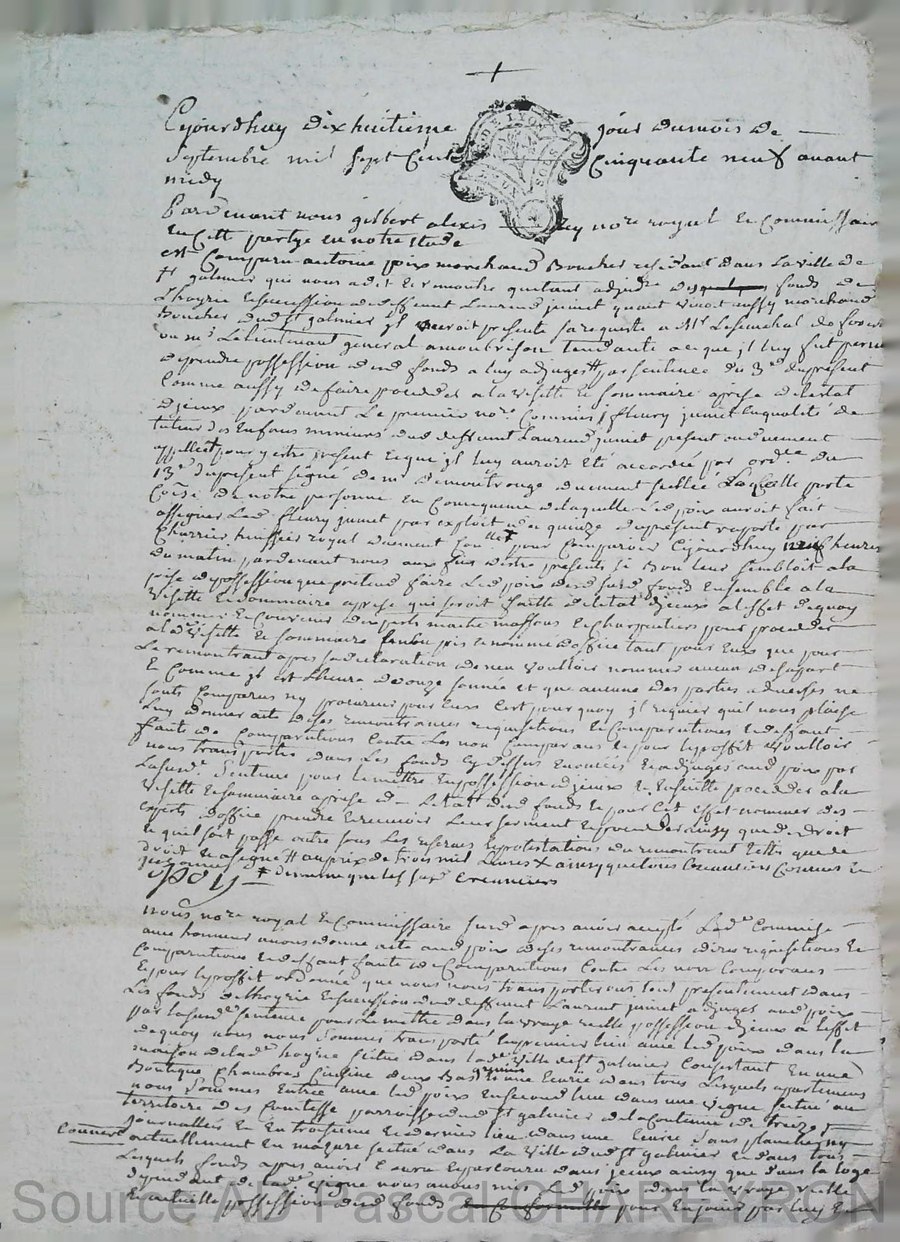 +
Cejourdhuy dixhuitieme jour du mois de
Septembre mil Sept Cent Cinquante neuf avant
midy
DE LYON
Pardevant nous gilbert alexis no.re royal et Commissaire
en Cette partye en notre Etude
est Comparu antoine poix marchand Boucher residant dans la ville de
St galmier qui nous a dit et remontré quetant adjud.re des fonds de
Lhoyrie et sucession de deffunt Laurend juinet quant vivoit aussy marchand
Boucher dud. St galmier il auroit presenté sa requeste a Mr Le Senechal de forest
ou mr Le Lieutenant general a montbrison tendante a ce que il luy fut permis
de prendre possession desd. fonds a luy adjugés par sentence du 3e du present
Comme aussy de faire proceder a la visitte et sommaire aprise de lestat
dijceux pardevant Le premier no.re Commis, fleury juinet en qualité de
tuteur des Enfans mineurs dud. deffunt Laurend juinet present ou duement
appellé pour y estre present et que il luy auroit eté accordée par ord.ce du
13e du present signé de mr Demontrouge duement scellée Laquelle porte
de notre personne En Consequence de laquelle led. poix auroit fait
assigner Led. fleury juinet par exploit du quinze du present raporté par
Charrier huissier royal duement pour Comparoir Cejourdhuy neuf heures
du matin pardevant nous aux fins destre present si Bon leur sembloit a la
prise de possession que pretend faire Led. poix desd. fonds Ensemble a la
visitte et sommaire aprise qui seroit faitte de letat dijceux a leffet dequoy
nommer et Convenir dexperts maitre massons et Charpentiers pour proceder
a lad. visitte et sommaire aprise nommé doffice tant pour Eux que pour
Le remontrant apres sa declaration de nen voulloir nommer aucun de sa part
Et Comme il est Lheure de onze sonnée et que aucune des parties adverses ne
sont Comparus ny procureur pour Eux Cest pourquoy il requier quil nous plaise
Luy donner acte de ses remontrances requisitions et Comparutions et deffaut
faute de Comparutions Contre Les non Comparans et pour le proffit voulloir
nous transporter dans Les fonds Cy dessus Enoncés et adjugés aud. poix par
La susd. Sentence pour le mettre En possession dijceux et Ensuitte proceder a la
visitte et sommaire aprise de Letat desd. fonds Et pour Cet effet nommer des
experts doffice prendre et recevoir Leur serment et proceder ainsy que de droit
Et quil soit passé outre sous Les reserves et protestations du remontrant telles que de
droit Et a signé au prix de trois mil Livres ainsy que tous Creanciers Connus et
Poix
nous no.re royal Et Commissaire susd. apres avoir accepté Lad. Commise
avec honneur avons donné acte aud. poix de ses remontrances dires requisitions et
Comparutions Et deffaut faute de Comparutions Contre Les non Comparans
Et pour le proffit ordonné que nous nous transporterons tout presentement dans
Les fonds de lhoyrie Et sucession dud. deffunt Laurent juinet adjugés aud. poix
par La susd. sentence pour Le mettre dans la vraye réelle possession dijceux a leffet
dequoy nous nous sommes transporté En premier lieu avec led. poix dans la
maison de lad. hoyrie scitué dans lad. ville de St galmier Consistant En une
Boutique Chambres Cuisine deux Bas greniers une Ecurie dans tous Lesquels apartemens
nous Sommes Entrés avec led. poix En second lieu dans une vigne scitué au
territoire des Comtesse parroisse dud. St galmier de la Contenue de treize
journallées Et En troisieme et dernier lieu dans une Ecurie Sans plancher ny
Couvert actuellement En mazure scitué dans La ville dud. St galmier Et dans tous
Lesquels fonds apres avoir Entré et parcouru dans jceux ainsy que dans la loge
dependante de lad. vigne nous avons mis led. poix dans la vraye réelle
Et actuelle possession desd. fonds pour En jouir par luy Et
Source AD Pascal CHAREYRON